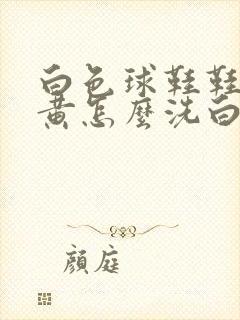 白色球鞋鞋
黄怎麼洗白
顔庭